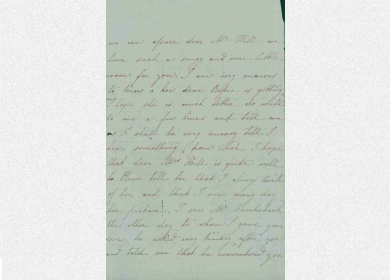 we can spare dear Mrs Hill we
have such a snugg and nice little
room for you. I am very anxious
to know how dear is getting
I hope she is much better do write
to me a few lines and tell me
as I shall be very uneasy till I
hear something from their. I hope
that dear Mrs Hill is quite well
to Please tell her that I always think
of her and that I kiss every day
her picture. I saw Mr
the other day to whom I gave your
love he asked very kindly after you
and told me that he remembered you